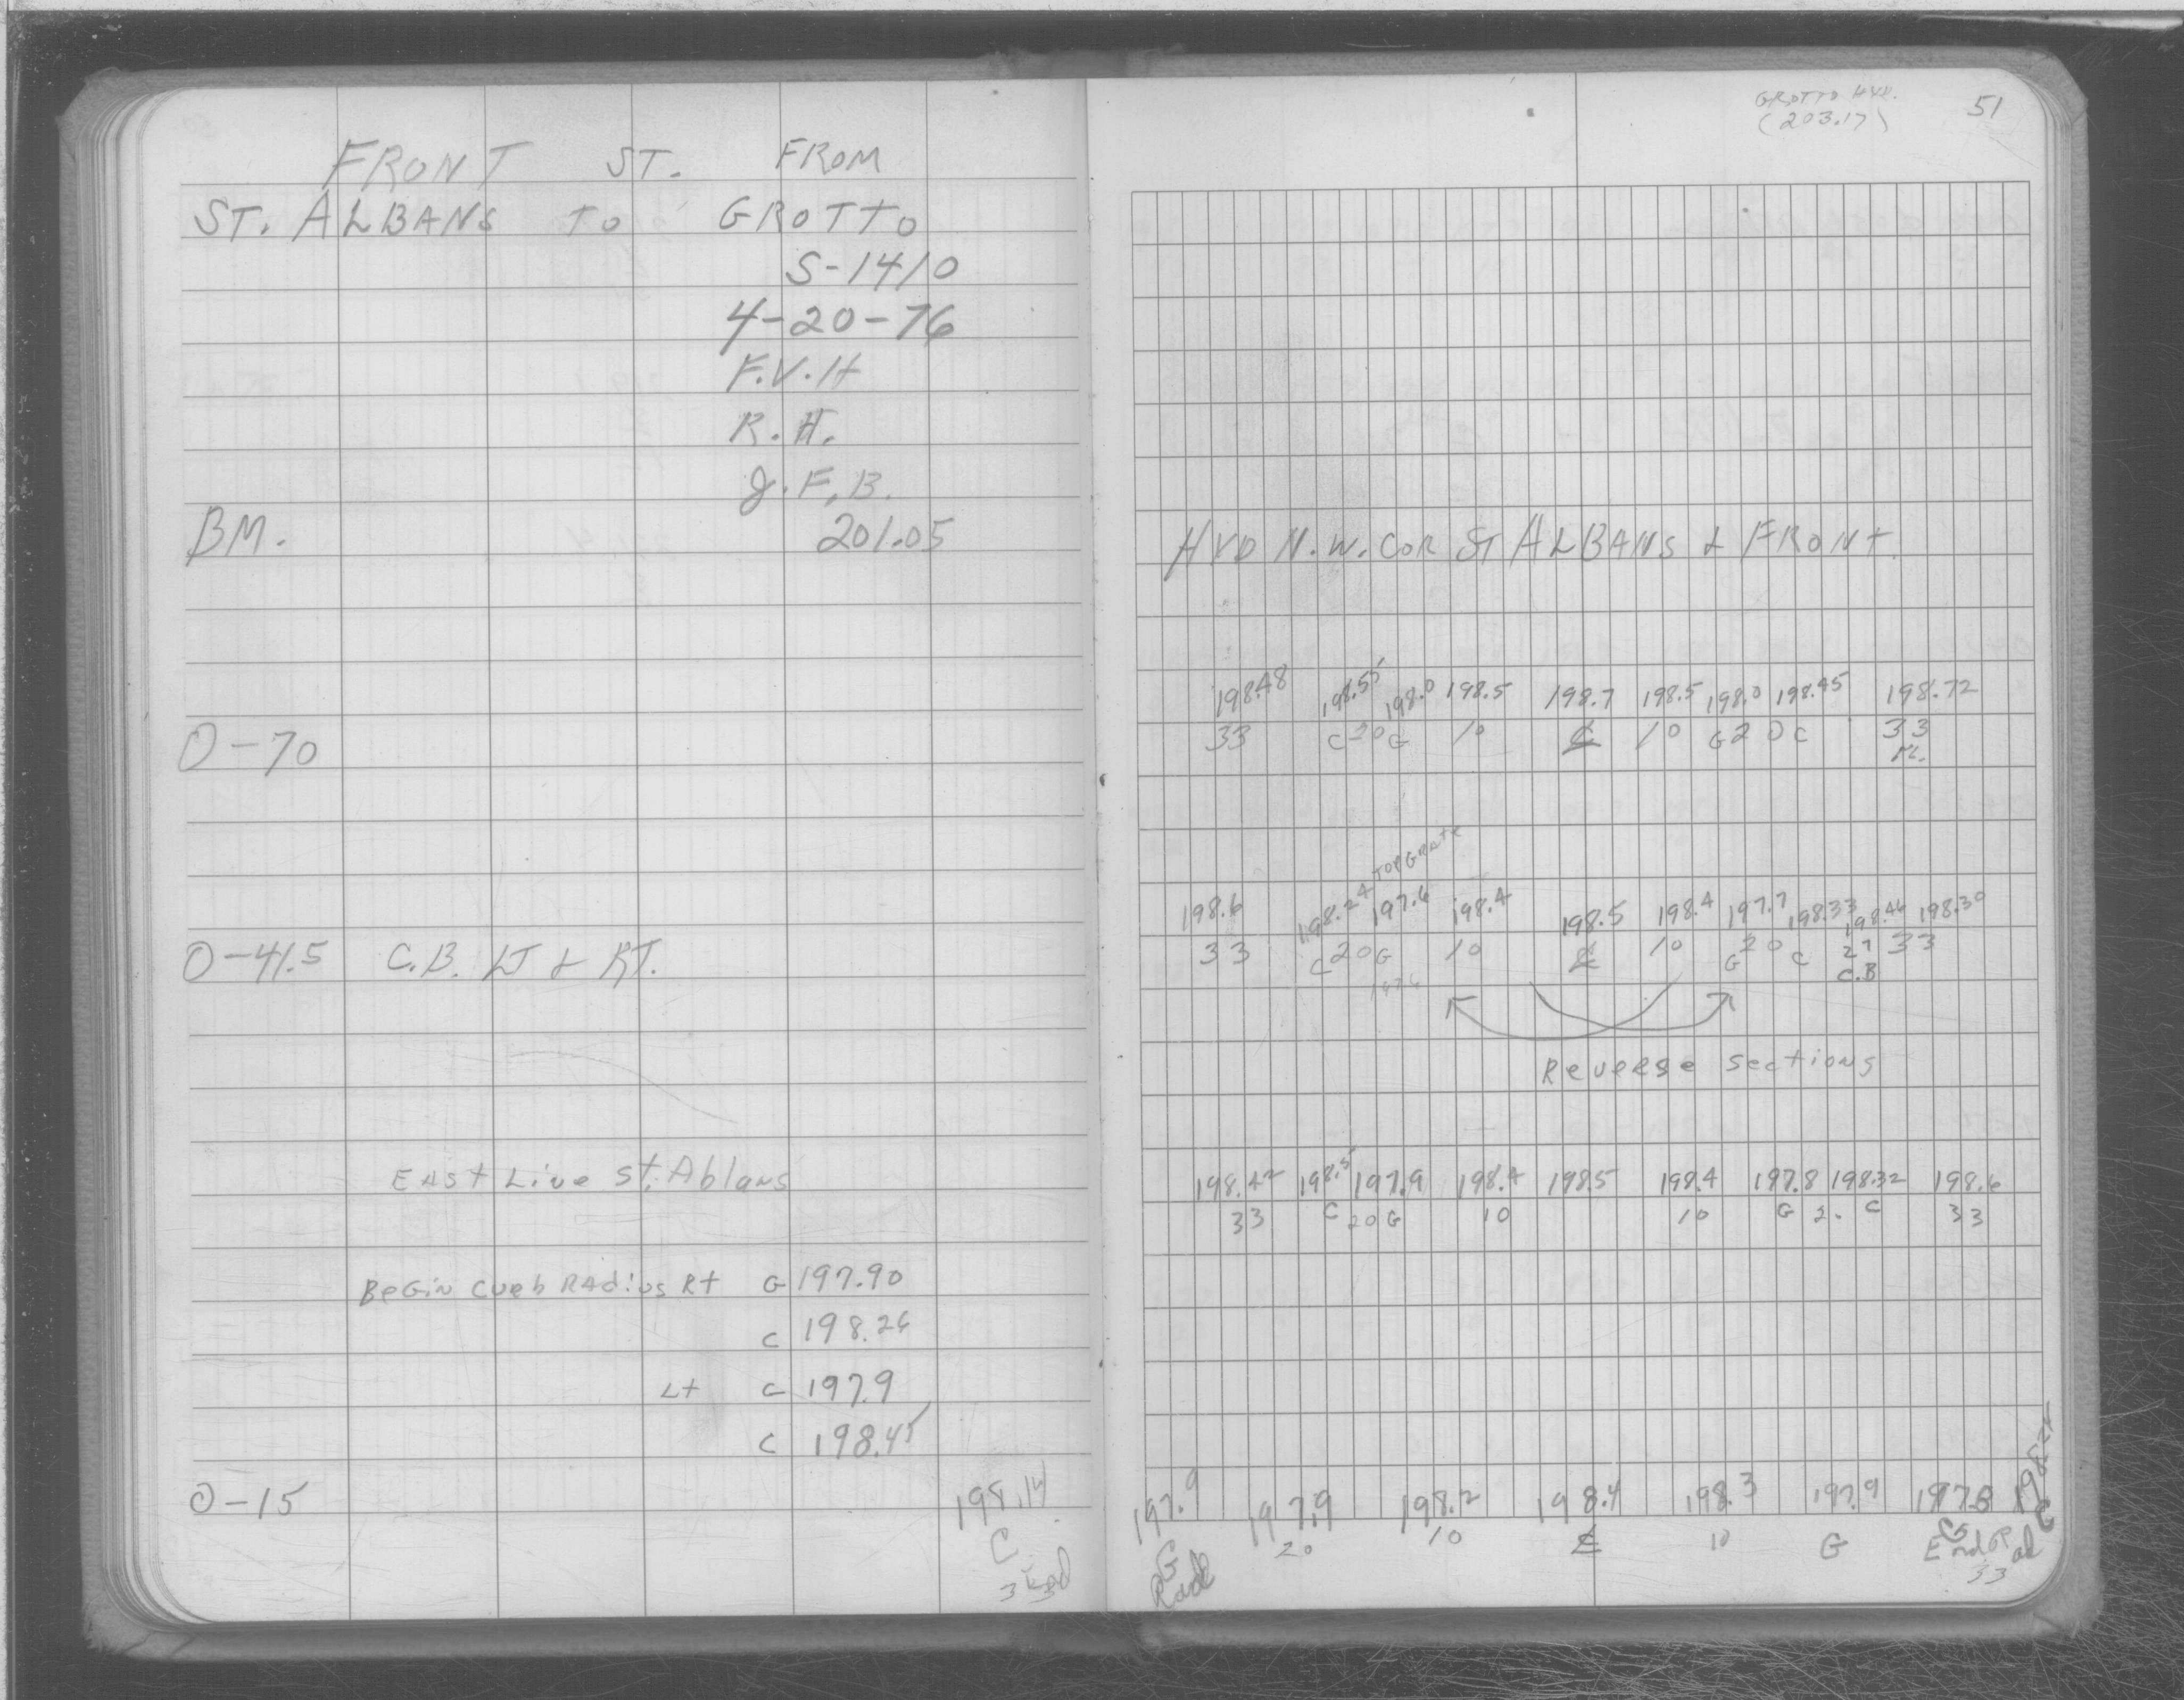 FRONT ST. FROM
ST. ALBANS TO GROTTO
S-1410
4-20-76
F.V.H
R.H.
J.F.B.
BM. 201.05
O-70
O-41.5 C.B. LT & RT.
EAst Line St. Ablans
BeGin Curb RAdius Rt G 197.90
C 198.26
Lt G 197.9
C 198.45
O-15 198.14
C
33 Rad
GROTTO HYD.
(203.17)
51
HYD N.W. COR ST ALBANS & FRONT.
198.48 198.55 198.0 198.5 198.7 198.5 198.0 198.45 198.72
33 C 20 G 10 ℄ 10 G 20 C 33
TOP GRATE
198.6 198.24 197.6 198.4 198.5 198.4 197.7 198.33 198.46 198.30
33 C 20 G 10 ℄ 10 G 20 C 27 33
C.B
Reverse Sections
198.42 198.5 197.9 198.4 198.5 198.4 197.8 198.32 198.6
33 C 20 G 10 10 G 20 C 33
197.9 197.9 198.2 198.4 198.3 197.9 197.8
G 20 10 ℄ 10 G G C
Rad End Rad
33